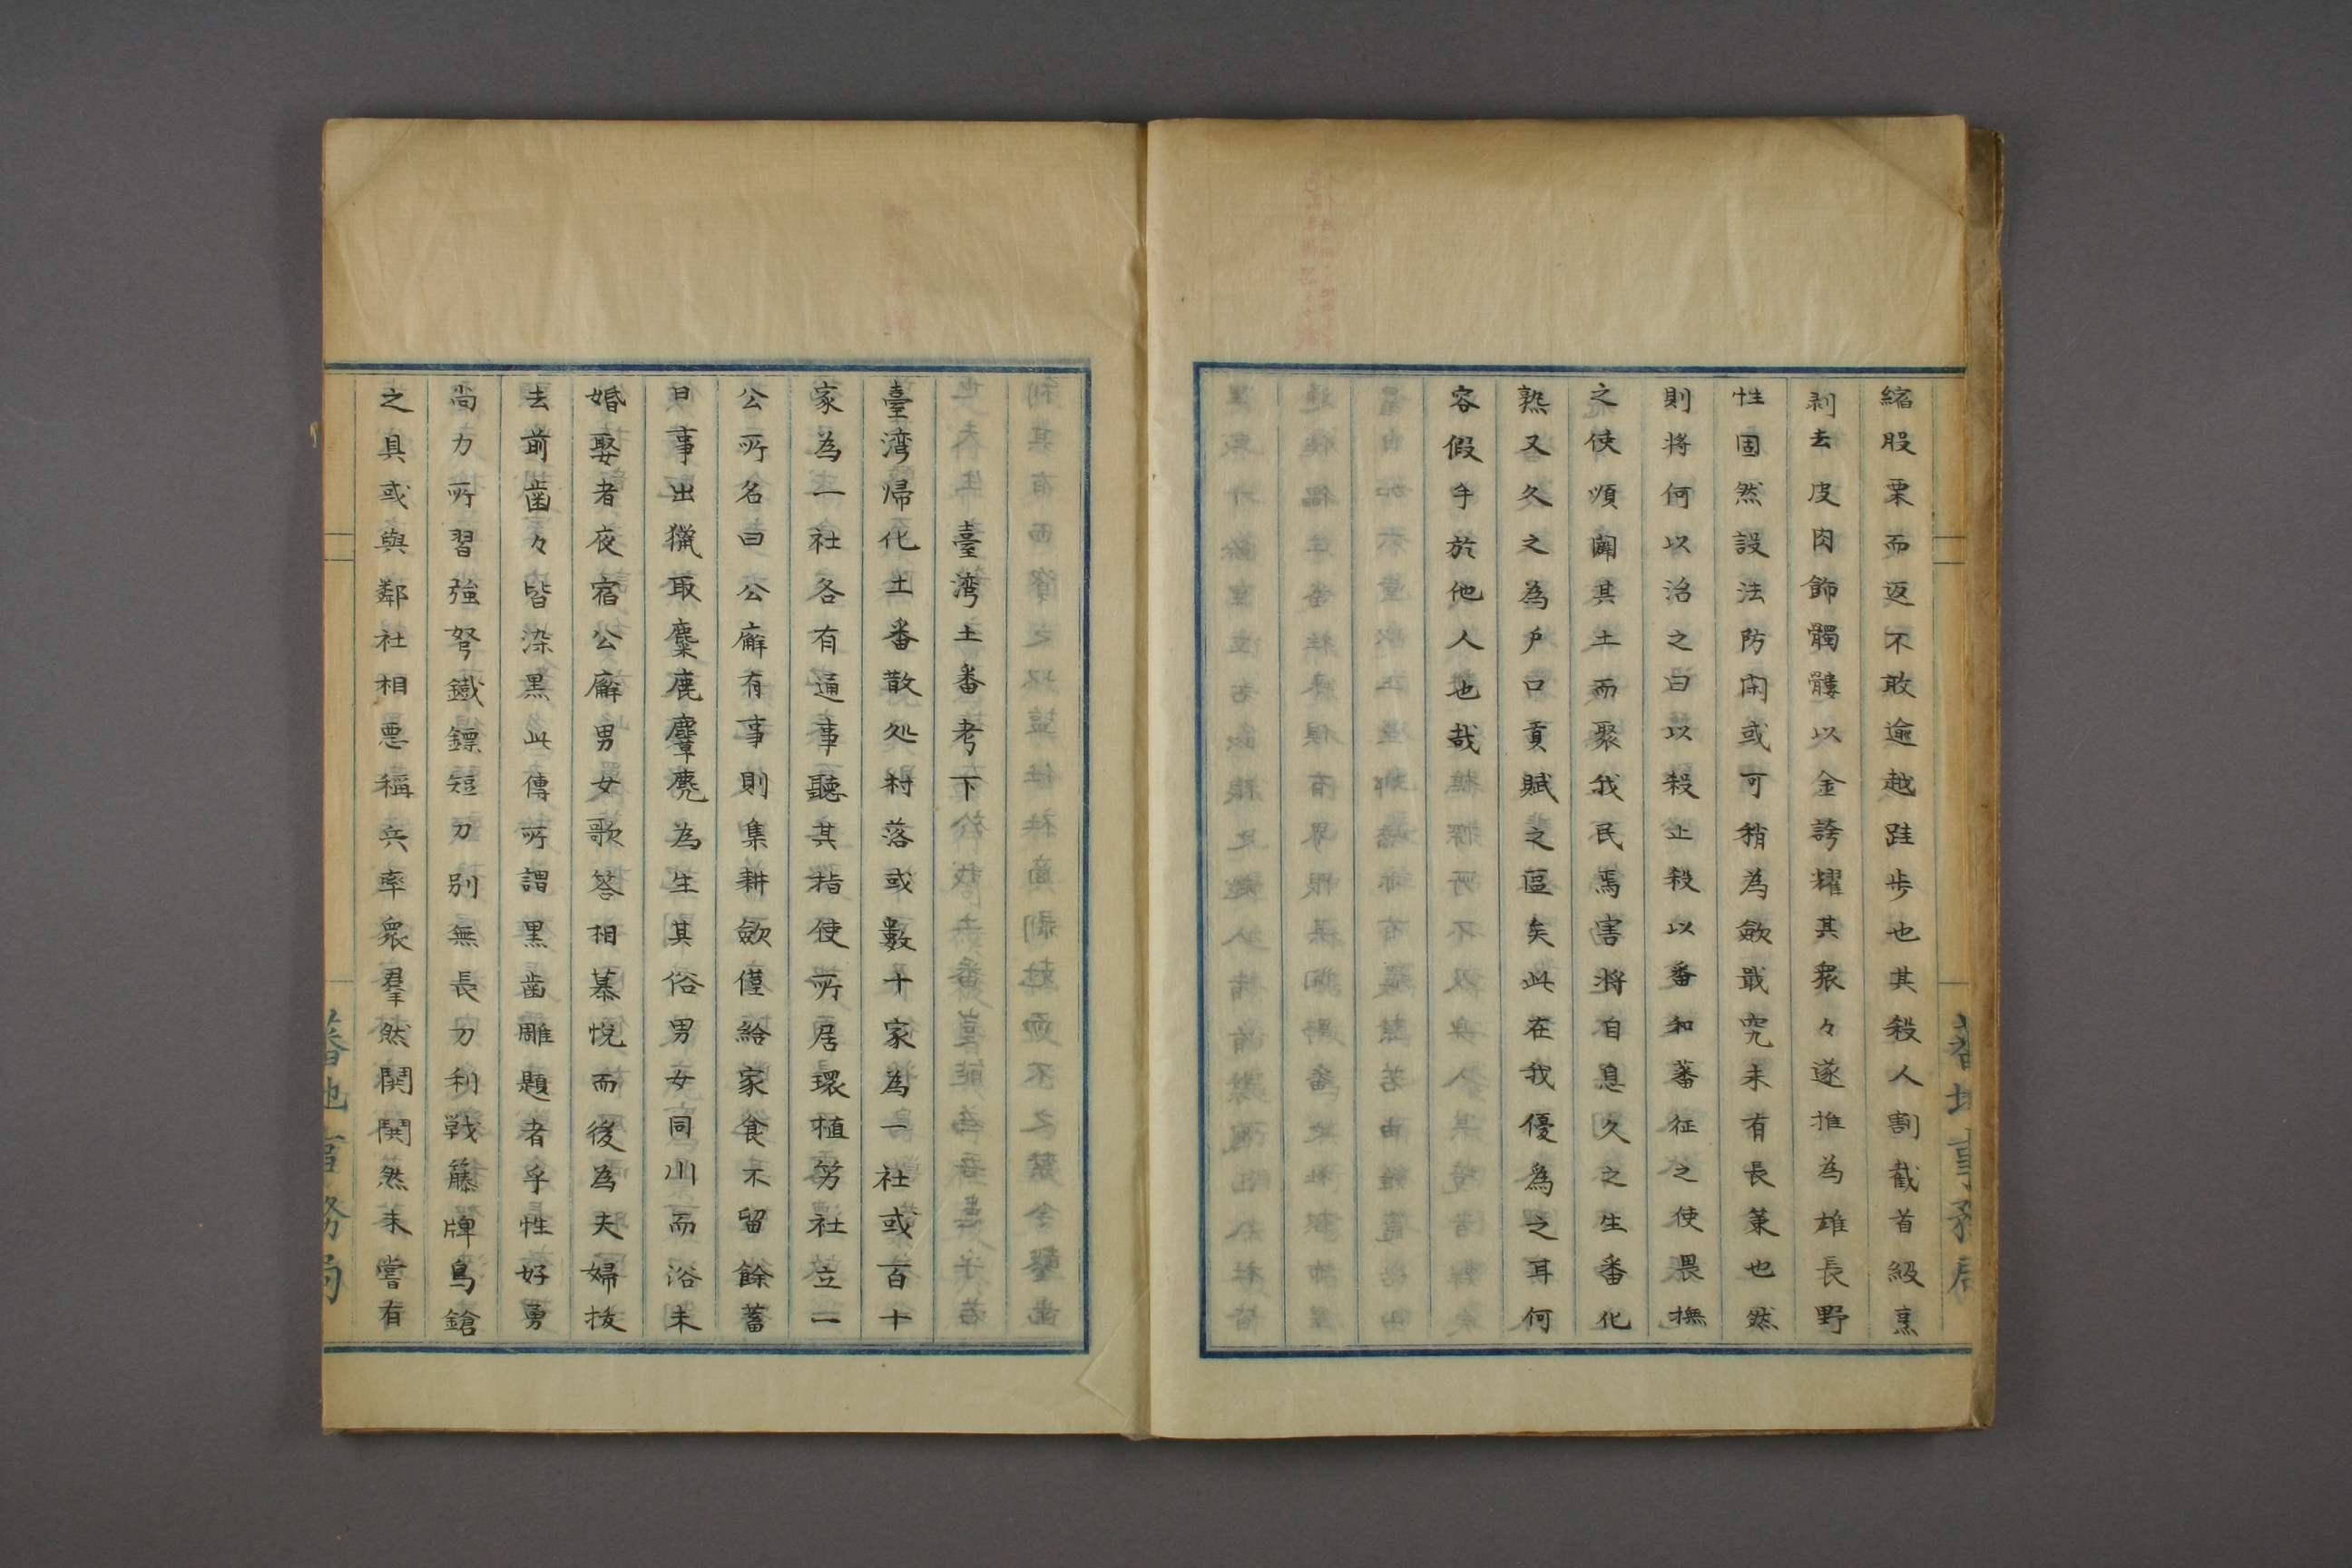 縮股栗而返不敢逾越跬歩也其殺人割截首級烹
剥去皮肉飾髑髏以金誇耀其衆々遂推為雄長野
性固然設法防閑或可稍為斂戢究未有長策也然
則将何以治之曰以殺止殺以番和蕃征之使畏撫
之使順闢其土而聚我民焉害将自息久之生番化
熟又久之為戶口貢賦之區矣此在我優為之耳何
容假手於他人也哉
蕃地事務局
臺湾土番考下
臺湾帰化土番散処村落或數十家為一社或百十
家為一社各有通事聽其指使所居環植竻社立一
公所名曰公廨有事則集耕斂僅給家食不留餘蓄
日事出獵取麋鹿麞麂為生其俗男女同川而浴未
婚娶者夜宿公廨男女歌答相慕悅而後為夫婦拔
去前齒々皆染黒此傳所謂黒齒雕題者乎性好勇
尚力所習強弩鐵鏢短刀別無長刀利戟籐牌鳥鎗
之具或與鄰社相惡稱兵率衆羣然鬨鬨然未嘗有
蕃地事務局